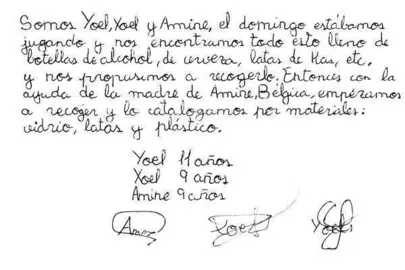 Somos Yoel, Xoel y Amine, el domingo estábamos
jugando y nos encontramos todo esto lleno de
botellas de alcohol, de cerveza, latas de Kas, etc,
y nos propusimos a recogerlo. Entonces con la
ayuda de la madre de Amine, Bélgica, empezamos
a recoger y lo catalogamos por materiales:
vidrio, latas y plástico.
Yoel 11 años
Xoel 9 años
Amine 9 años
Xoel
Yoel